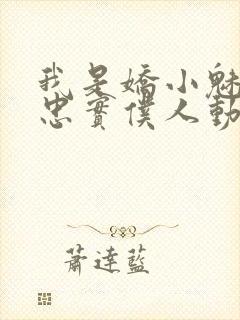 我是嬌小魅
忠實僕人動
蕭達藍